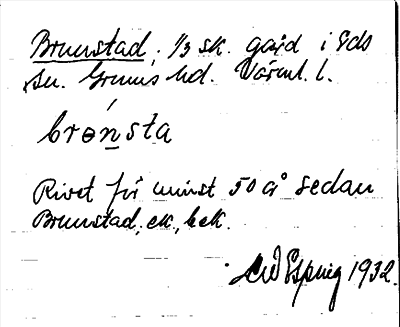 Brunstad, 1/3 sk. gård i Eds
sn. Grums hd. Värml. l.
brønsta
Rivet för minst 50 å sedan
Brunstad, ek., bek.
1932.